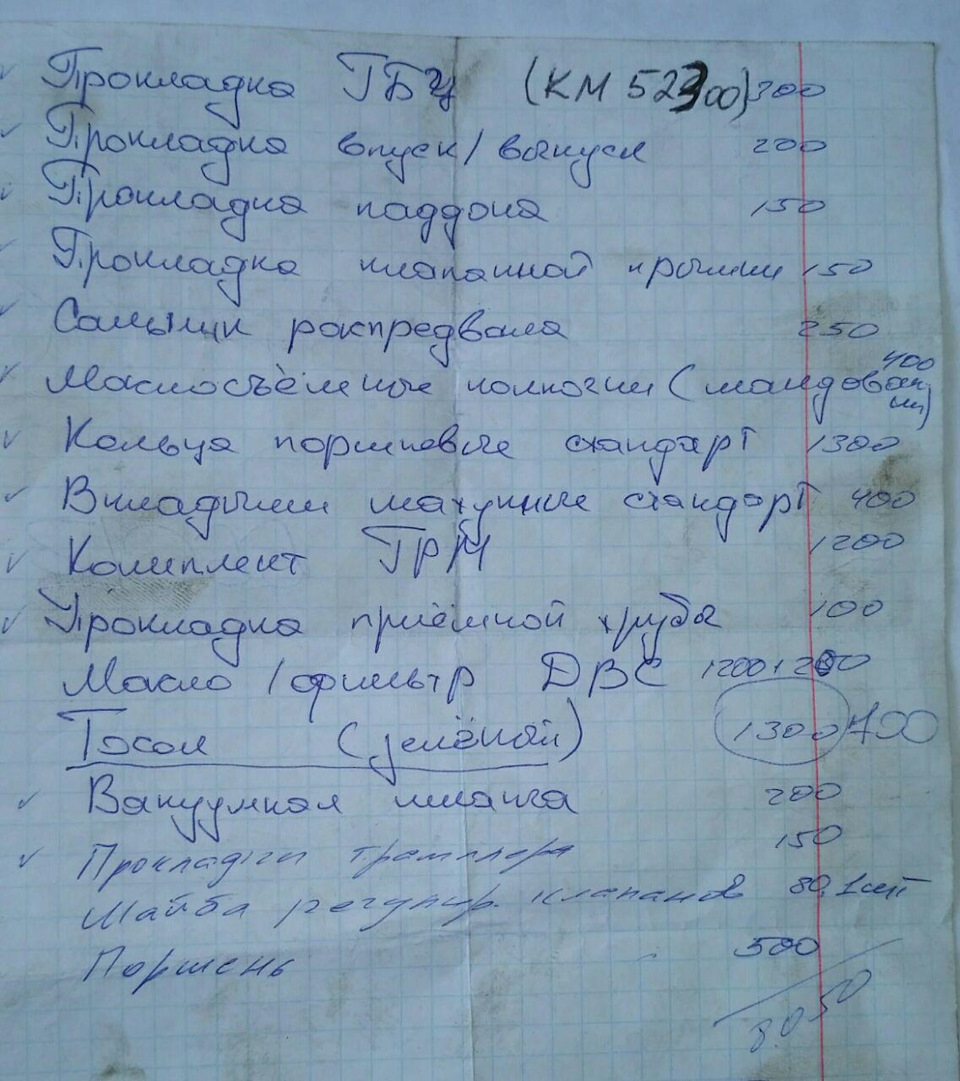 Прокладка ГБЦ (КМ 52300) 300
Прокладка впуск/выпуск 200
Прокладка паддона 150
Прокладка клапанной крышки 150
Сальник распредвала 250
Маслосъёмные колпочки (мандованки) 400
Кольца поршневые стандарт 1300
Вкладыши шатунные стандарт 400
Комплект ГРМ 1200
Прокладка приёмной трубы 100
Масло / фильтр ДВС 1200+200
Тосол (зелёный) 1300 700
Вакуумная шланга 200
Прокладки трамплера 150
Шайба регулир. клапанов 80, 1шт
Поршень 500
8050